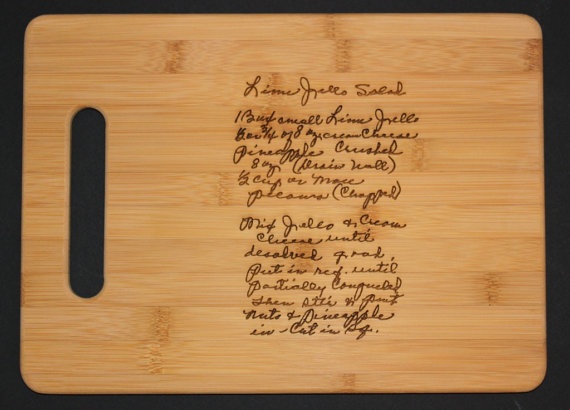 Lime Jello Salad
1 Box small Lime Jello
Bar 3/4 of 8 oz, cream Cheese
Pineapple Crushed
8 oz (Drain Well)
1/2 Cup or More
Pecans (Chopped)
Mix Jello & Cream
Cheese until
desolved good,
Put in ref. until
partially Congealed
then stir & put
nuts & Pineapple
in - Cut in Sq.